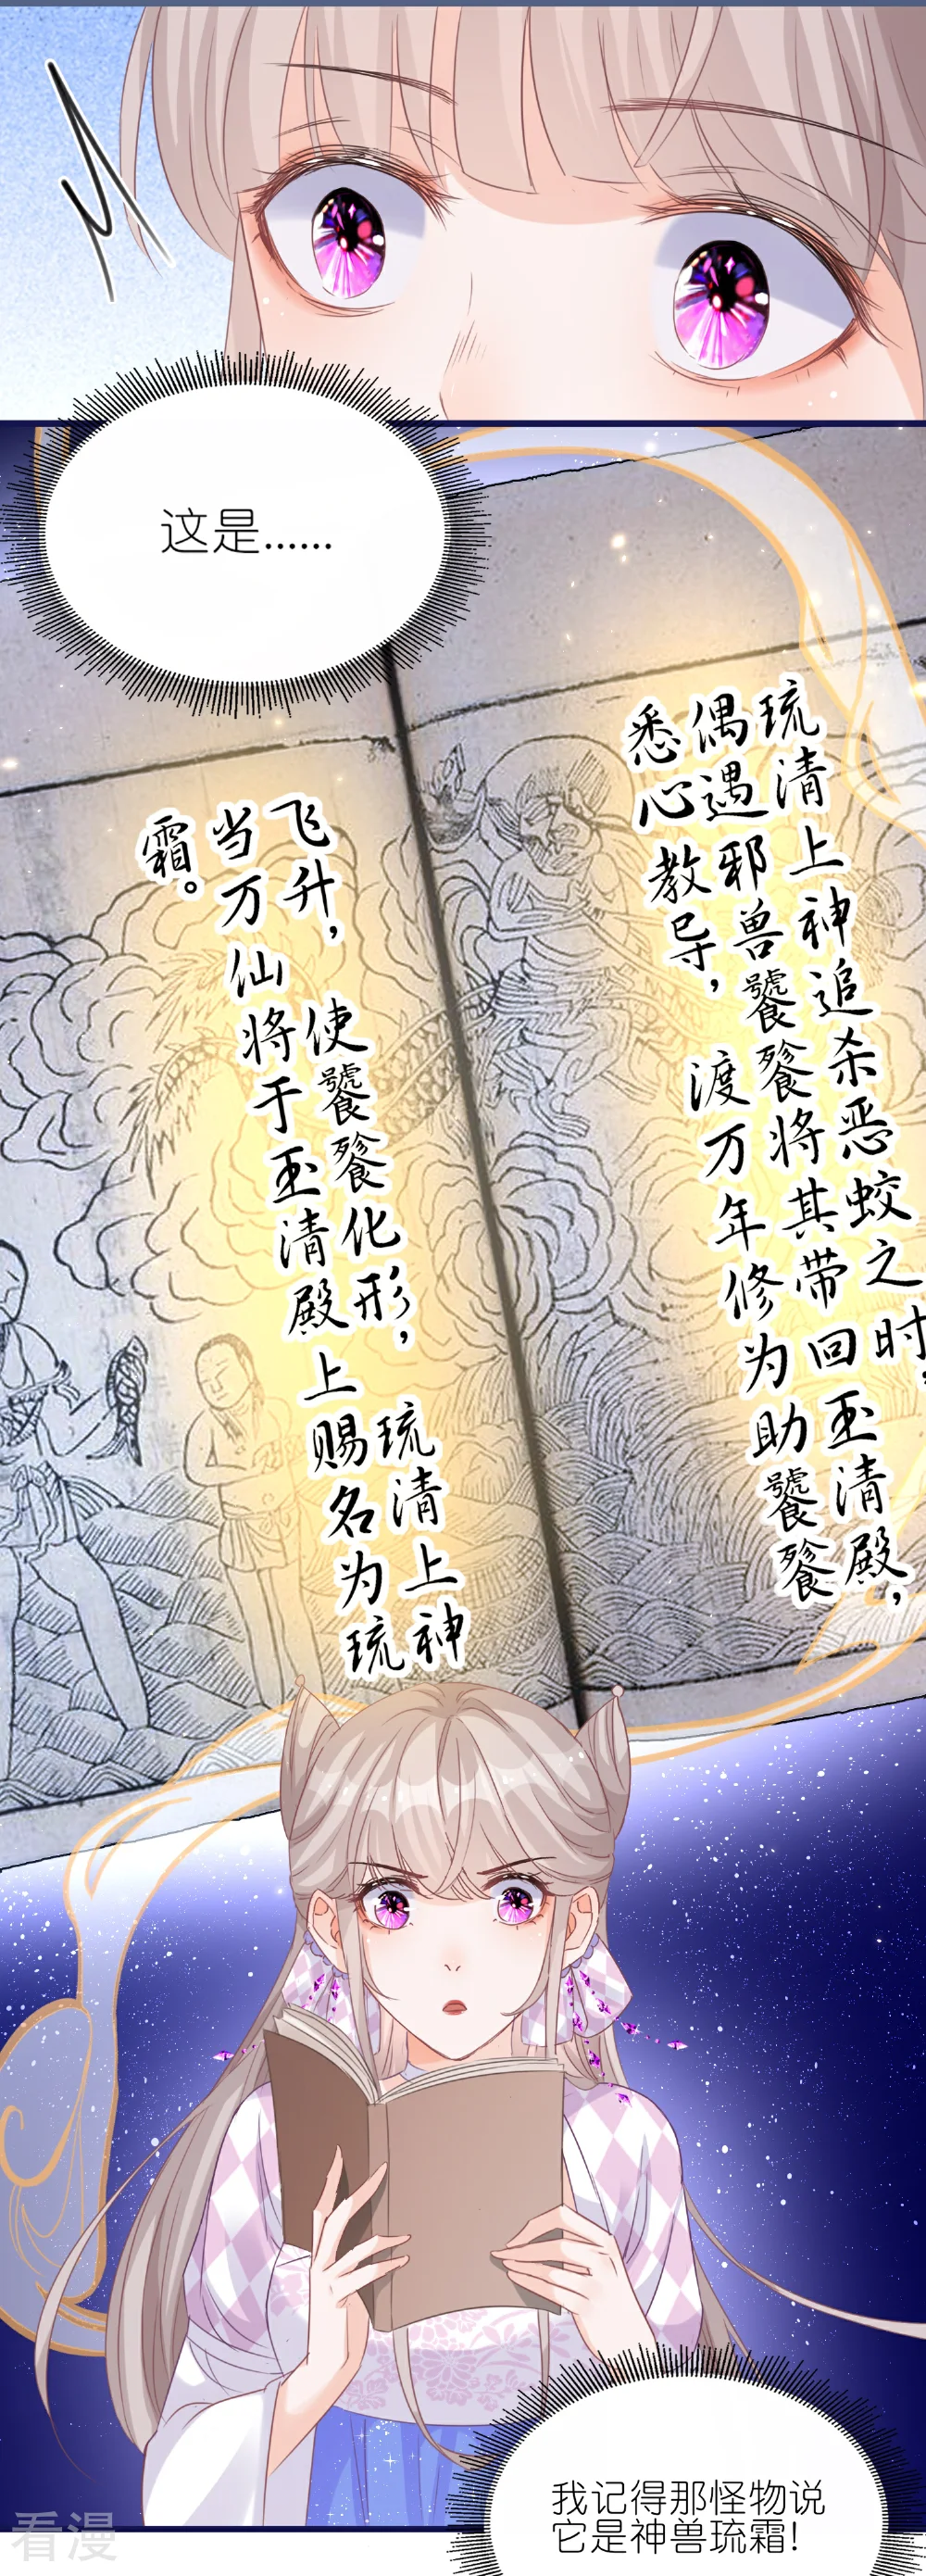 这是......
琉清上神追杀恶蛟之时，
偶遇邪兽饕餮将其带回玉清殿，
悉心教导，渡万年修为助饕餮
飞升，使饕餮化形，琉清上神
当万仙将于玉清殿上赐名为琉
霜。
我记得那怪物说
它是神兽琉霜!
看漫